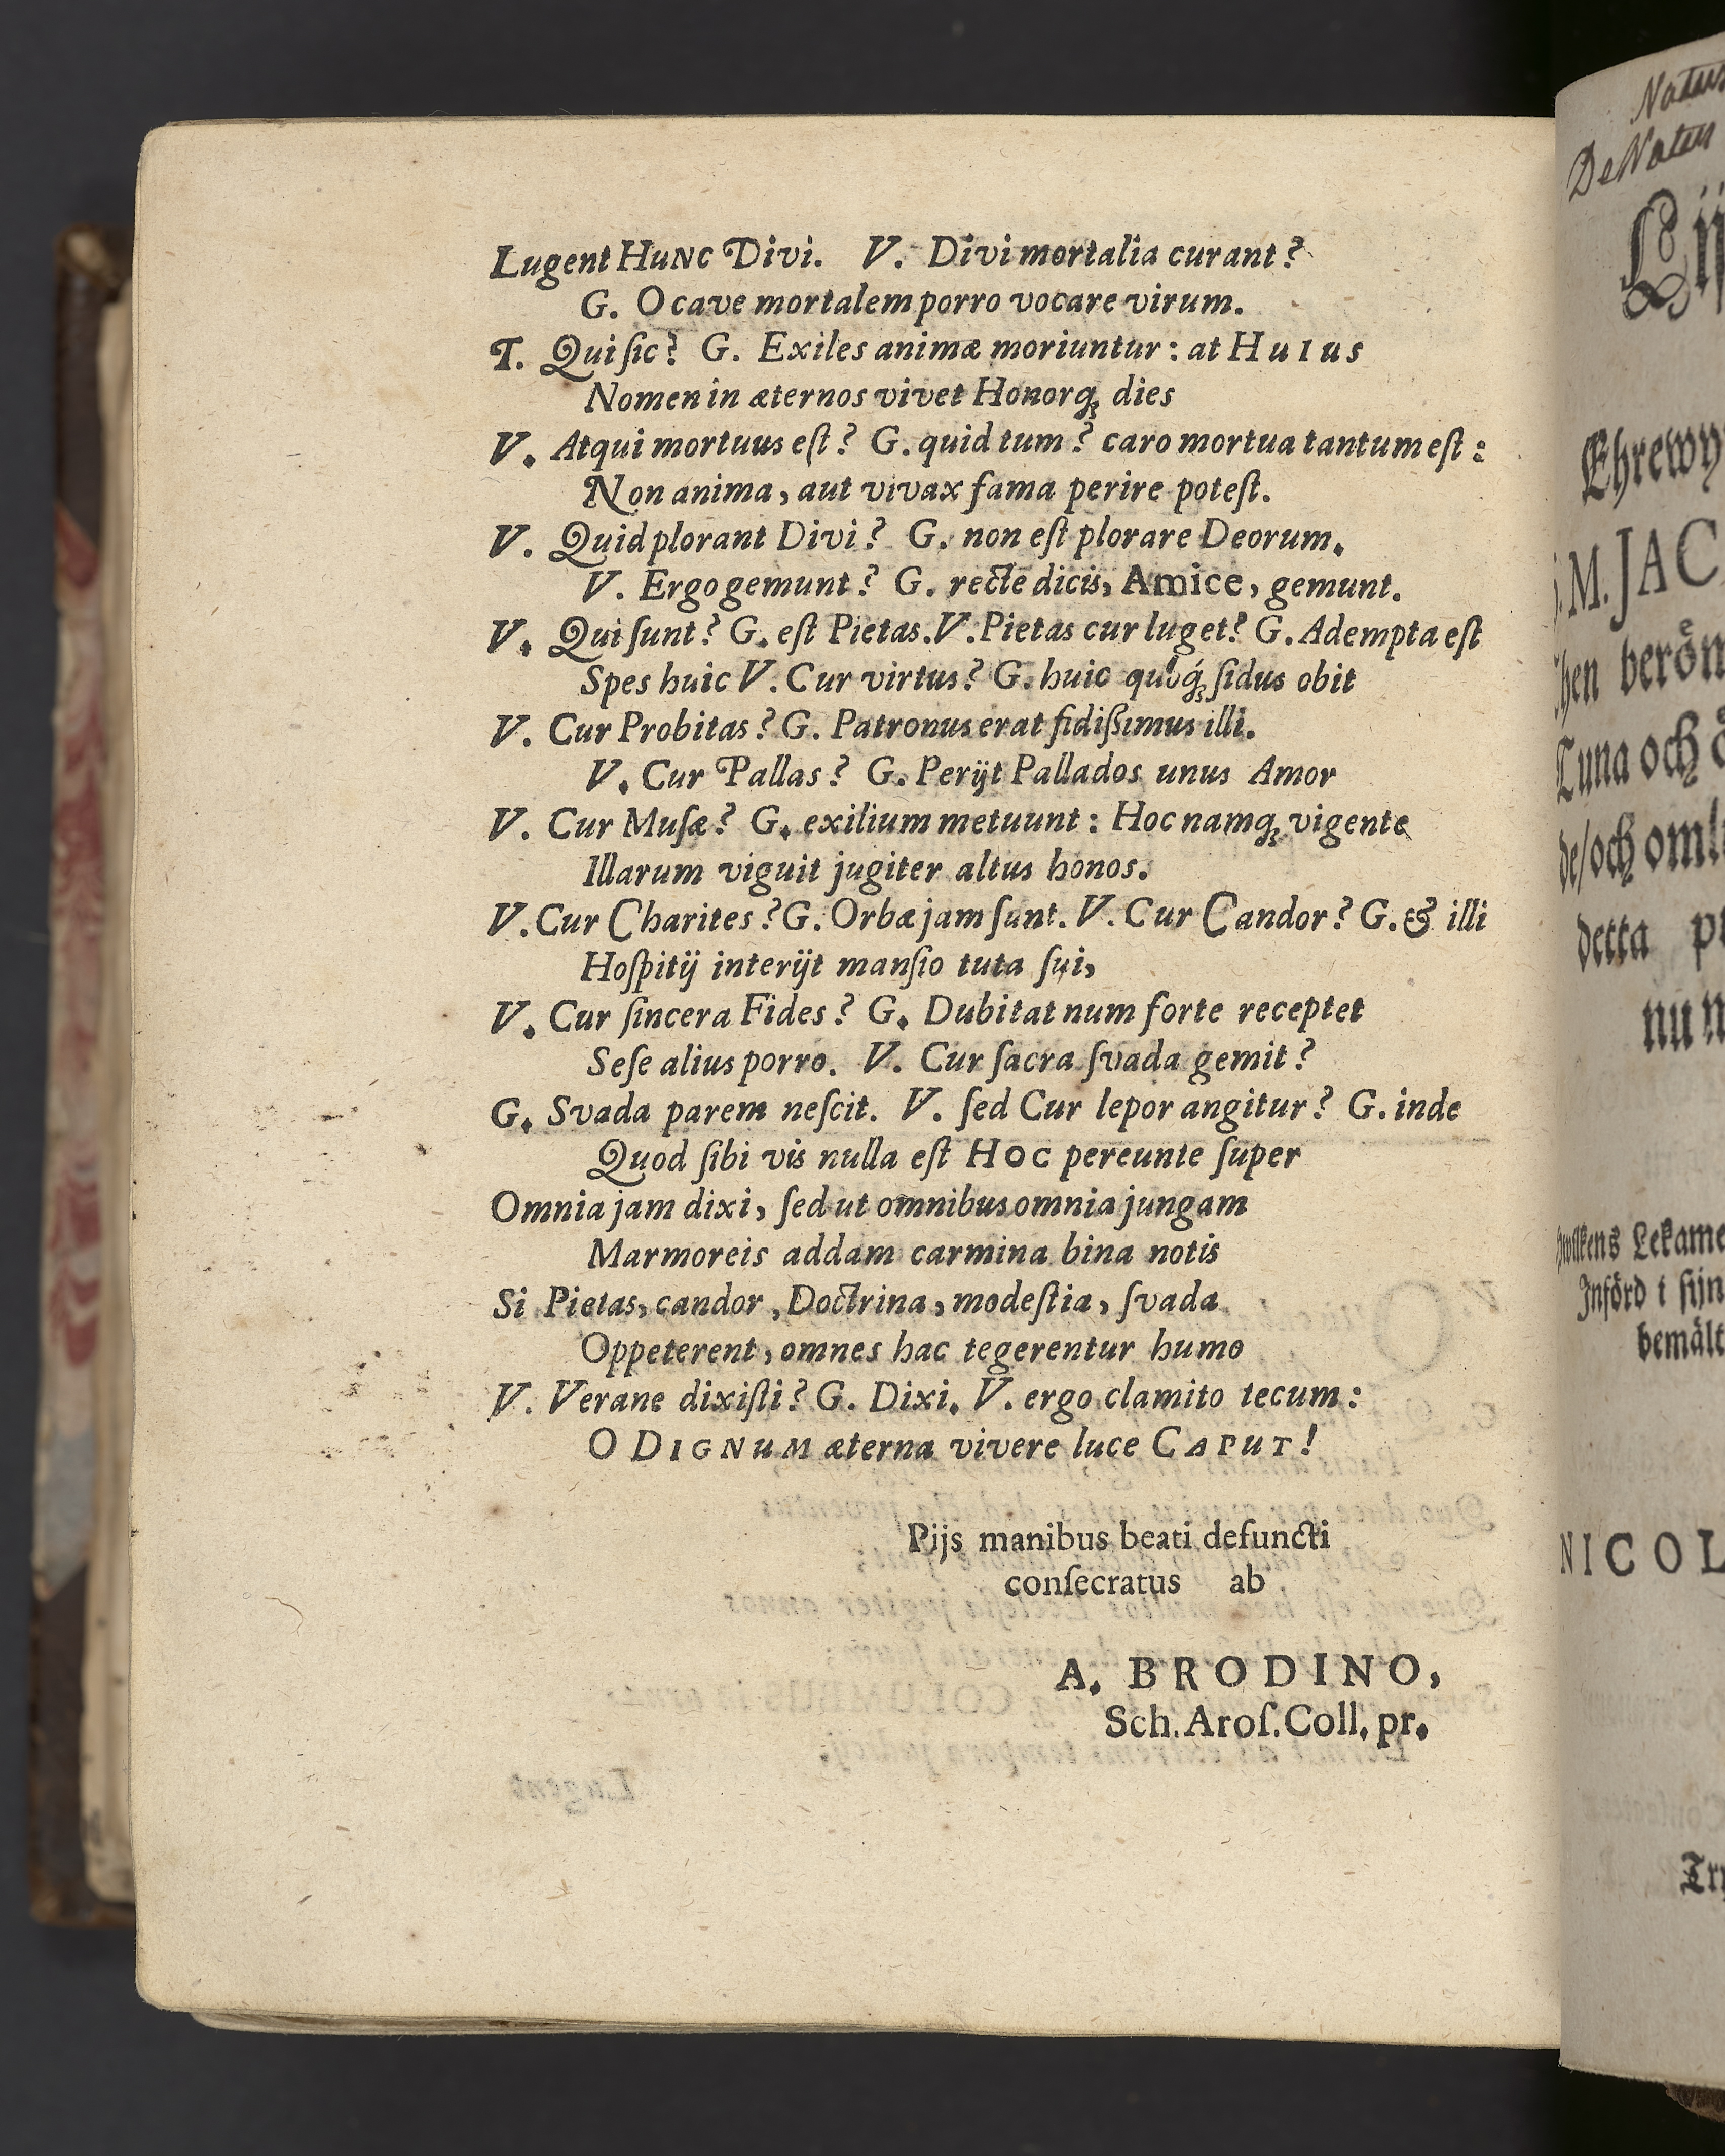 Lugent HuNC Divi. V. Divi mortalia curant?
G. O cave mortalem porro vocare virum.
T. Qui ſic? G. Exiles animæ moriuntur: at HuIus
Nomen in æternos vivet Honorq́; dies
V. Atqui mortuus eſt? G. quid tum? caro mortua tantum eſt:
Non anima, aut vivax fama perire poteſt.
V. Quid plorant Divi? G. non eſt plorare Deorum.
V. Ergo gemunt? G. recte dicis, Amice, gemunt.
V. Qui ſunt? G. eſt Pietas. V. Pietas cur luget? G. Adempta eſt
Spes huic V. Cur virtus? G. huic quoq́; ſidus obit
V. Cur Probitas? G. Patronus erat fidiſsimus illi.
V. Cur Pallas? G. Perijt Pallados unus Amor
V. Cur Muſæ? G. exilium metuunt: Hoc namq; vigente
Illarum viguit jugiter altus honos.
V. Cur Charites? G. Orbæ jam ſunt. V. Cur Candor? G. & illi
Hoſpitij interijt manſio tuta ſui,
V. Cur ſincera Fides? G. Dubitat num forte receptet
Seſe alius porro. V. Cur ſacra ſvada gemit?
G. Svada parem neſcit. V. ſed Cur lepor angitur? G. inde
Quod ſibi vis nulla eſt HOC pereunte ſuper
Omnia jam dixi, ſed ut omnibus omnia jungam
Marmoreis addam carmina bina notis
Si Pietas, candor, Doctrina, modeſtia, ſvada
Oppeterent, omnes hac tegerentur humo
V. Verane dixiſti? G. Dixi. V. ergo clamito tecum:
O DIGNuM æterna vivere luce CAPuT!
Pijs manibus beati defuncti
conſecratus ab
A. BRODINO,
Sch. Aroſ. Coll. pr.
Natus
DeNatus
Ehrewy
M. JAC
hen beröm
Tuna och
de/och oml
detta
nu
Lekame
Införd i ſijn
bemält
NICOL